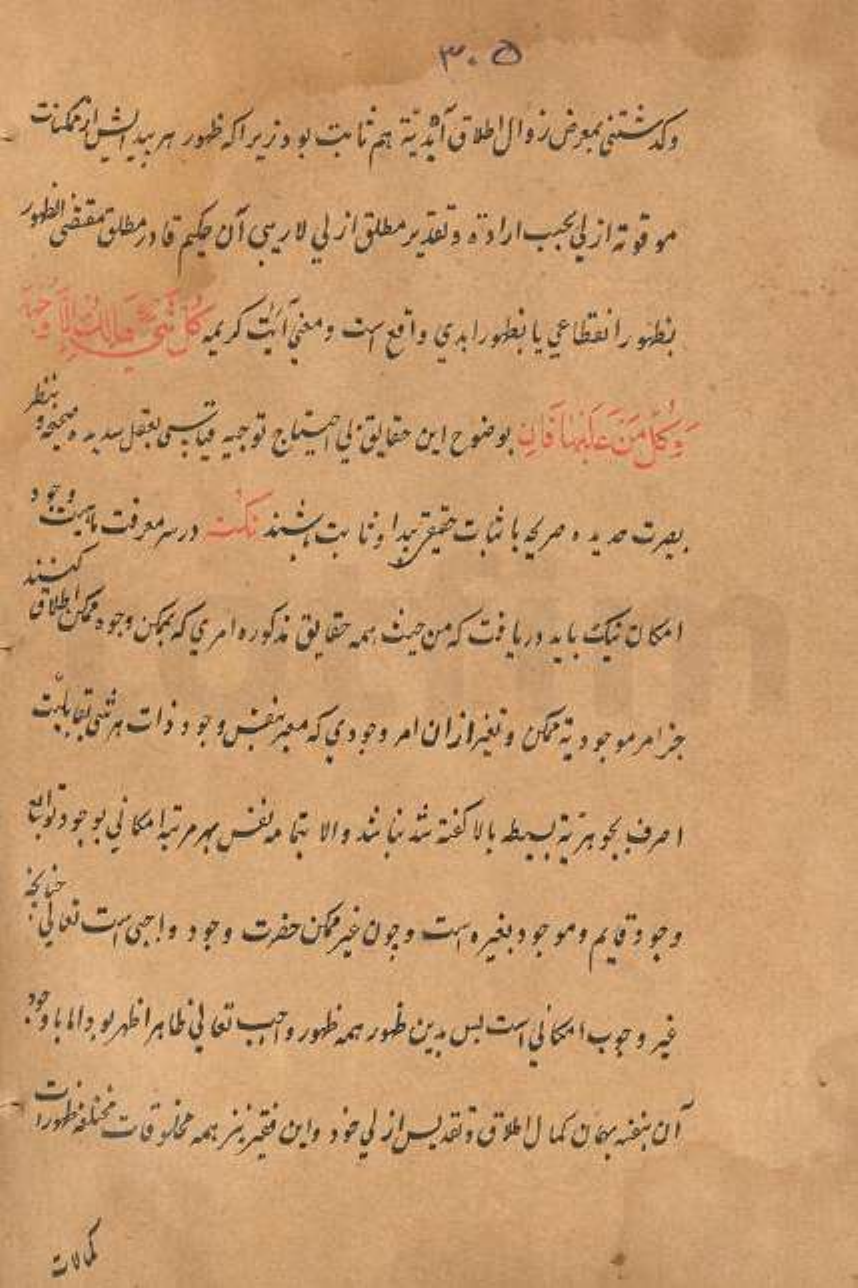 ۳۰۵
وگذشتنی بمعرض زوال اطلاق ابدیة هم ثابت بود زیرا که ظهور هر پیدایش از ممکنات
موقوته ازلی بحسب اراده و تقدیر مطلق ازلی لاریبی آن حکیم قادر مطلق بمقتضی الظهور
بظهور انقطاعی یا بظهور ابدی واقع است ومعنی آیت کریمه كُلُّ شَيْءٍ هَالِكٌ إِلَّا وَجْهَهُ
وَ كُلُّ مَنْ عَلَيْهَا فَانٍ بوضوح این حقایق بی احتیاج توجیه قیاسی بعقل سدیده صحیحه و بنظر
بصرت حدیده صریحه باثبات حقیقی پیدا و ثابت باشند نکته در سر معرفت ماهیت وجود
امکان نیک باید دریافت که من حیث همه حقایق مذکوره امری که بممکن وجود ممکن اطلاق کنند
جز امر موجودیة ممکن و تغیر ازان امر وجودی که معبر بنفس وجود ذات هر شی بقابلیت
صرف بجوهریة بسیطه بالا گفته شد نباشد والا بتمامه نفس بهر مرتبه امکانی بوجود توابع
وجود قایم وموجود بغیره است وچون غیر ممکن حضرت وجود واجبی است تعالی چنانچه
غیر وجوب امکانی است پس بدین ظهور همه ظهور واجب تعالی ظاهرا ظهر بود اما باوجود
آن بنفسه بهمان کمال اطلاق و تقدیس ازلی خود واین فقیر نیز همه مخلوقات مختلفه ظهورات
کمالات